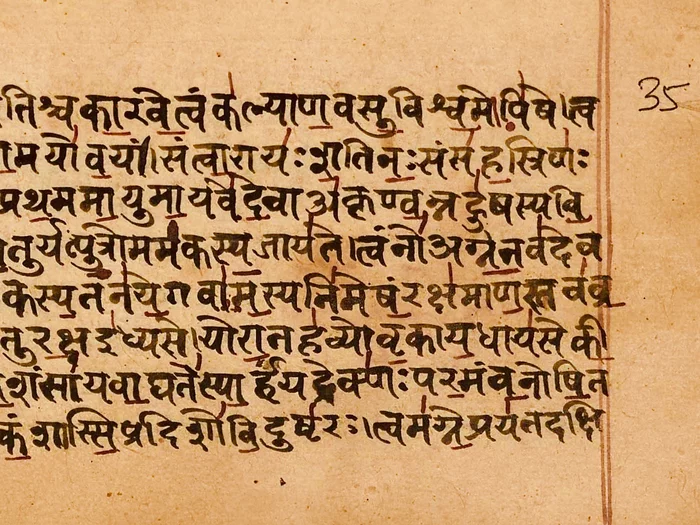 तिश्च का॒रवे॒ त्वं क॑ल्याण॒ वसु॒ विश्व॒मोपि॑षे। त्व
मयो॑ व॒यं॥ सं त्वा॒ रायः॑ श॒तिनः॒ सं स॑ह॒स्रिणः॑
प्रथ॒ममा॒युमा॒यवे॑ दे॒वा अ॑कृण्व॒न्नहु॑षस्य वि॒
तुर्यत्पु॒त्रो मम॑कस्य॒ जाय॑ते। त्वं नो॑ अग्ने॒ तव॑ देव
कस्य॒ तन॑ये॒ गवा॑म॒स्यनि॑मेषं॒ रक्ष॑माण॒स्तव॑ व्र॒
तुर॒क्ष इ॑ध्यसे। यो रा॒तह॑व्योवृ॒काय॒ धाय॑से की॒
शंसा॑य वा॒घते॑ स्पा॒र्हं यद्रेक्णः॑ पर॒मं व॒नोषि॒ त
कं॒ शास्सि॒ प्र दिशो॑ वि॒दुष्ट॑रः। त्वम॑ग्ने॒ प्रय॑तदक्षि
35